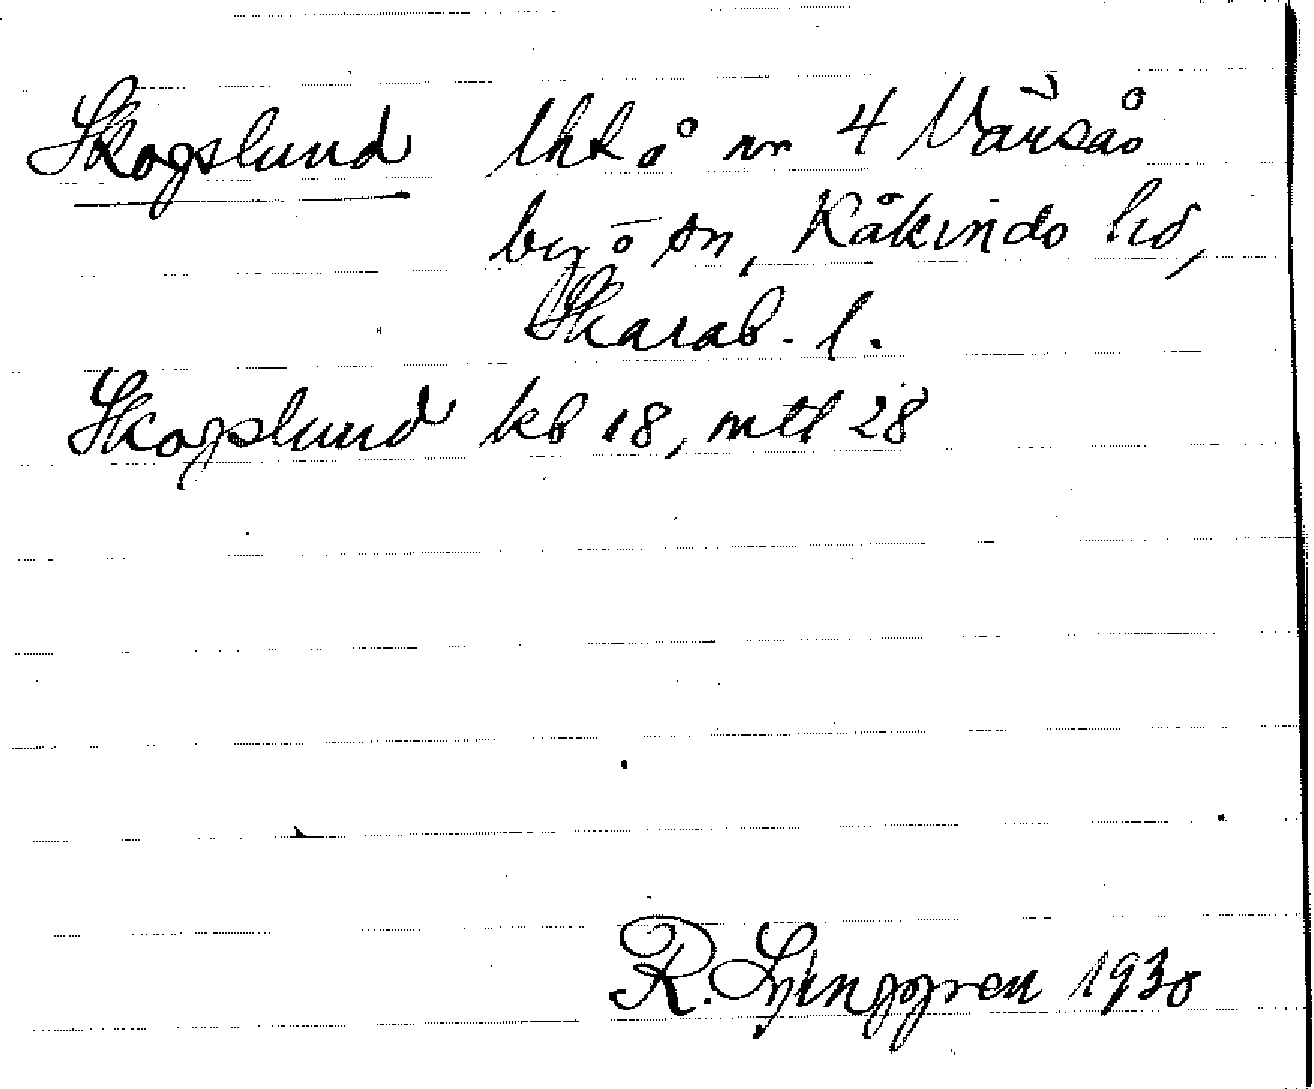 Skogslund lht å nr 4 Värsås
by o sn, Kåkinds hd,
Skarab. l.
Skogslund kb 18, mtl 28
R. Ljunggren 1930